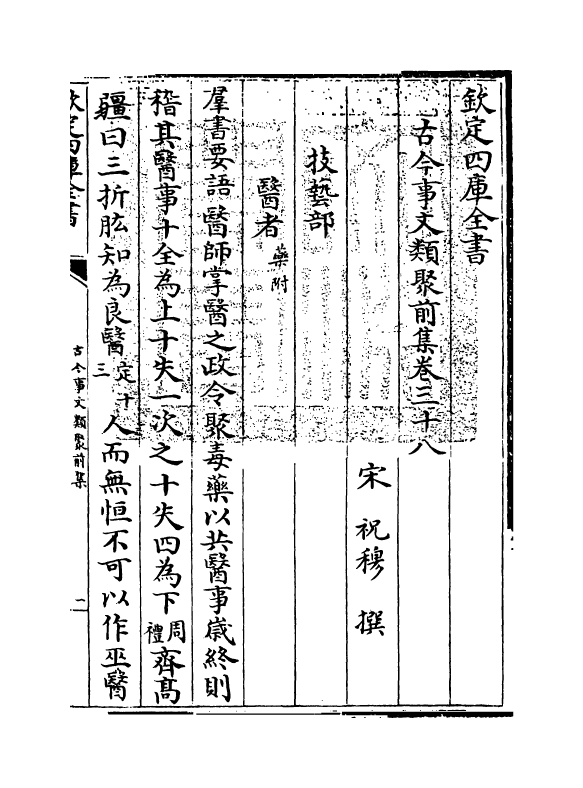 欽定四庫全書
古今事文類聚前集卷三十八
宋 祝穆 撰
技藝部
醫者藥附
羣書要語醫師掌醫之政令聚毒藥以共醫事歲終則
稽其醫事十全為上十失一次之十失四為下周禮齊髙
疆曰三折肱知為良醫定十三人而無恒不可以作巫醫
欽定四庫全書
古今事文類聚前集
一